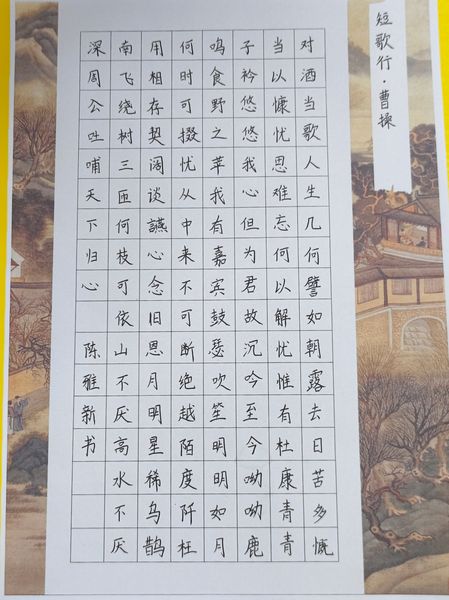 短歌行·曹操
对酒当歌人生几何譬如朝露去日苦多慨
当以慷忧思难忘何以解忧惟有杜康青青
子衿悠悠我心但为君故沉吟至今呦呦鹿
鸣食野之苹我有嘉宾鼓瑟吹笙明明如月
何时可掇忧从中来不可断绝越陌度阡枉
用相存契阔谈讌心念旧恩月明星稀乌鹊
南飞绕树三匝何枝可依山不厌高水不厌
深周公吐哺天下归心 陈雅新书